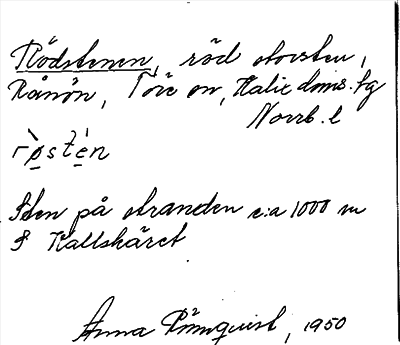 Rödstenen, röd storsten,
Rånön, Töre sn, Kalix doms. tg
Norrb. l
r̀ø̱sté̱n
Sten på stranden c:a 1000 m
S Kallskäret
Anna Rönnquist, 1950